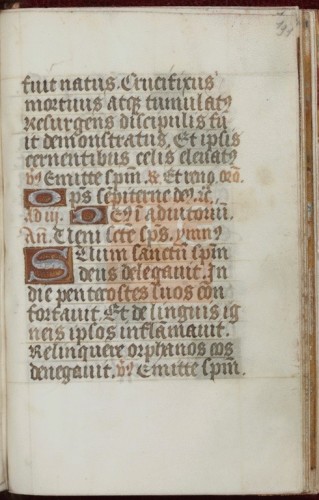 fuit natus. Crucifixus
mortuus atq; tumulatꝰ
Resurgens discipulis fu
it demonstratus. Et ipsis
cernentibus celis eleuatꝰ
v̄s Emitte spm̄. & Et reno. oro.
Ops sēpiterne deꝰ. rc̄.
Ad iij. Deꝰ ī adiutoriū.
An̄. Ueni sctē sps̄. ymnꝰ
Suum sanctū spm̄
deus delegauit. In
die pentecostes suos con
fortauit. Et de linguis ig
neis ipsos inflamauit.
Relinquere orphanos eos
denegauit. v̄s Emitte spm̄.